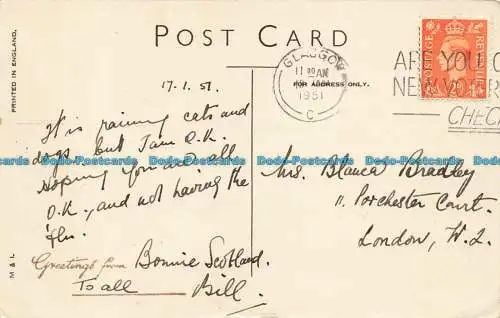 POST CARD
PRINTED IN ENGLAND.
FOR ADDRESS ONLY.
GLASGOW
11 30 AM
1951
C
ARE YOU O
NEW VOTER
CHECK
POSTAGE
REVENUE
17.1.51.
It is raining cats and
dogs, but I am O.K.
Hoping you are all
O.K., and not having the
'flu.
Greetings from Bonnie Scotland.
To all Bill.
Mrs. Blanca Bradley
11. Porchester Court.
London, W.2.
M & L
Dodo-Postcards Dodo-Postcards Dodo-Postcards Dodo-Postcards Dodo-Postcards Dodo-Postcards